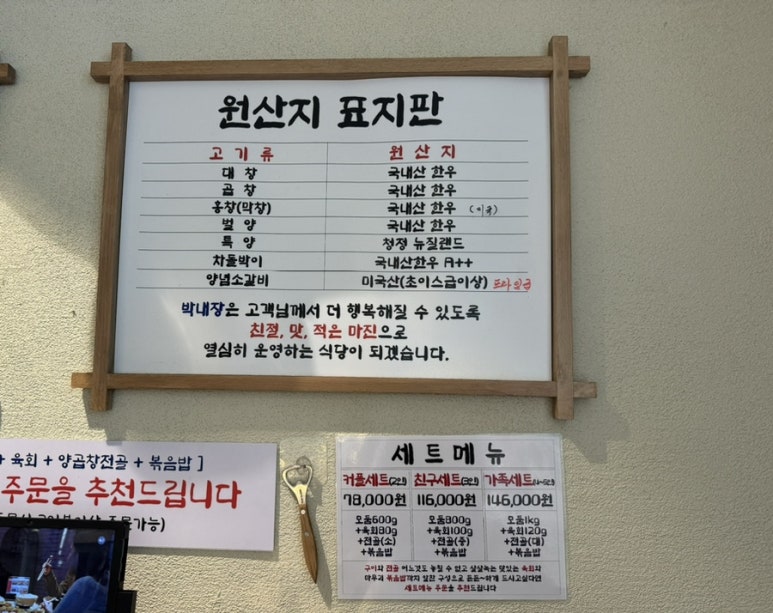 원산지 표지판
고 기 류 원 산 지
대 창 국내산 한우
곱 창 국내산 한우
홍창(막창) 국내산 한우 (미국)
벌 양 국내산 한우
특 양 청정 뉴질랜드
차돌박이 국내산한우 A++
양념소갈비 미국산(초이스급이상)
박내장은 고객님께서 더 행복해질 수 있도록
친절, 맛, 적은 마진으로
열심히 운영하는 식당이 되겠습니다.
+ 육회 + 양곱창전골 + 볶음밥 ]
주문을 추천드립니다
주문가능)
세트메뉴
커플세트(2인) 친구세트(3인) 가족세트
78,000원 116,000원 146,000원
모둠600g 모둠800g 모둠1kg
+육회80g +육회100g +육회120g
+전골(소) +전골(중) +전골(대)
+볶음밥 +볶음밥 +볶음밥
구이와 전골 어느것도 놓칠 수 없고 살살녹는 맛있는 육회와
마무리 볶음밥까지 알찬 구성으로 든든~하게 드시고싶다면
세트메뉴 주문을 추천드립니다